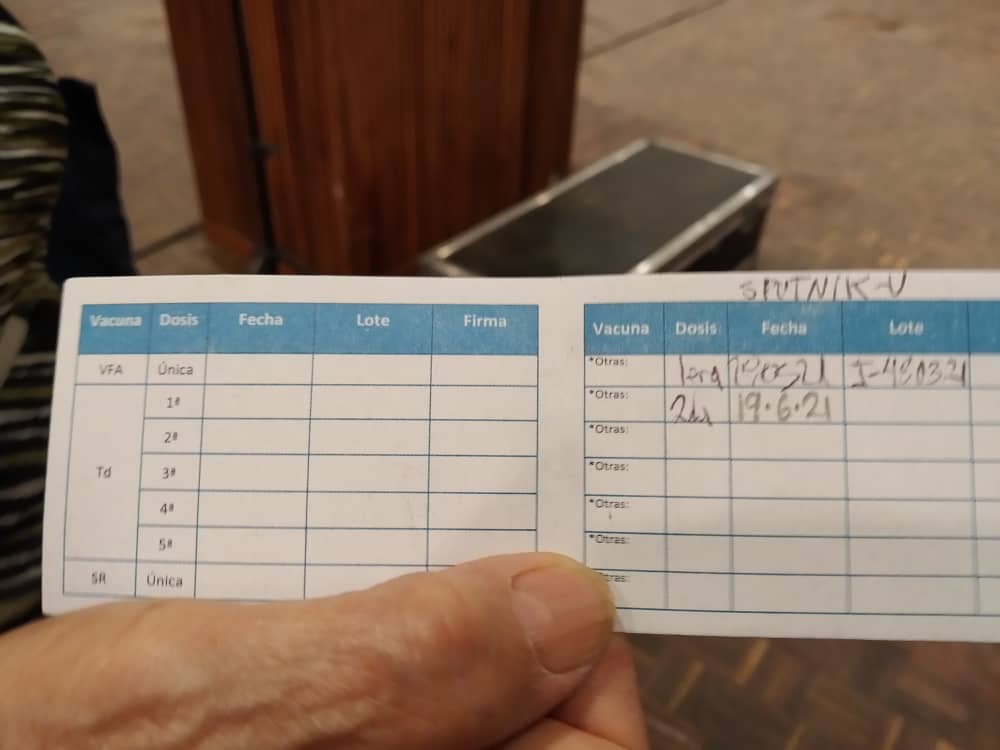 Vacuna Dosis Fecha Lote Firma
VFA Única
Td 1ª
2ª
3ª
4ª
5ª
SR Única
SPUTNIK-V
Vacuna Dosis Fecha Lote
*Otras: 1era
*Otras: 2da 19.6.21
*Otras:
*Otras:
*Otras:
*Otras:
tras: